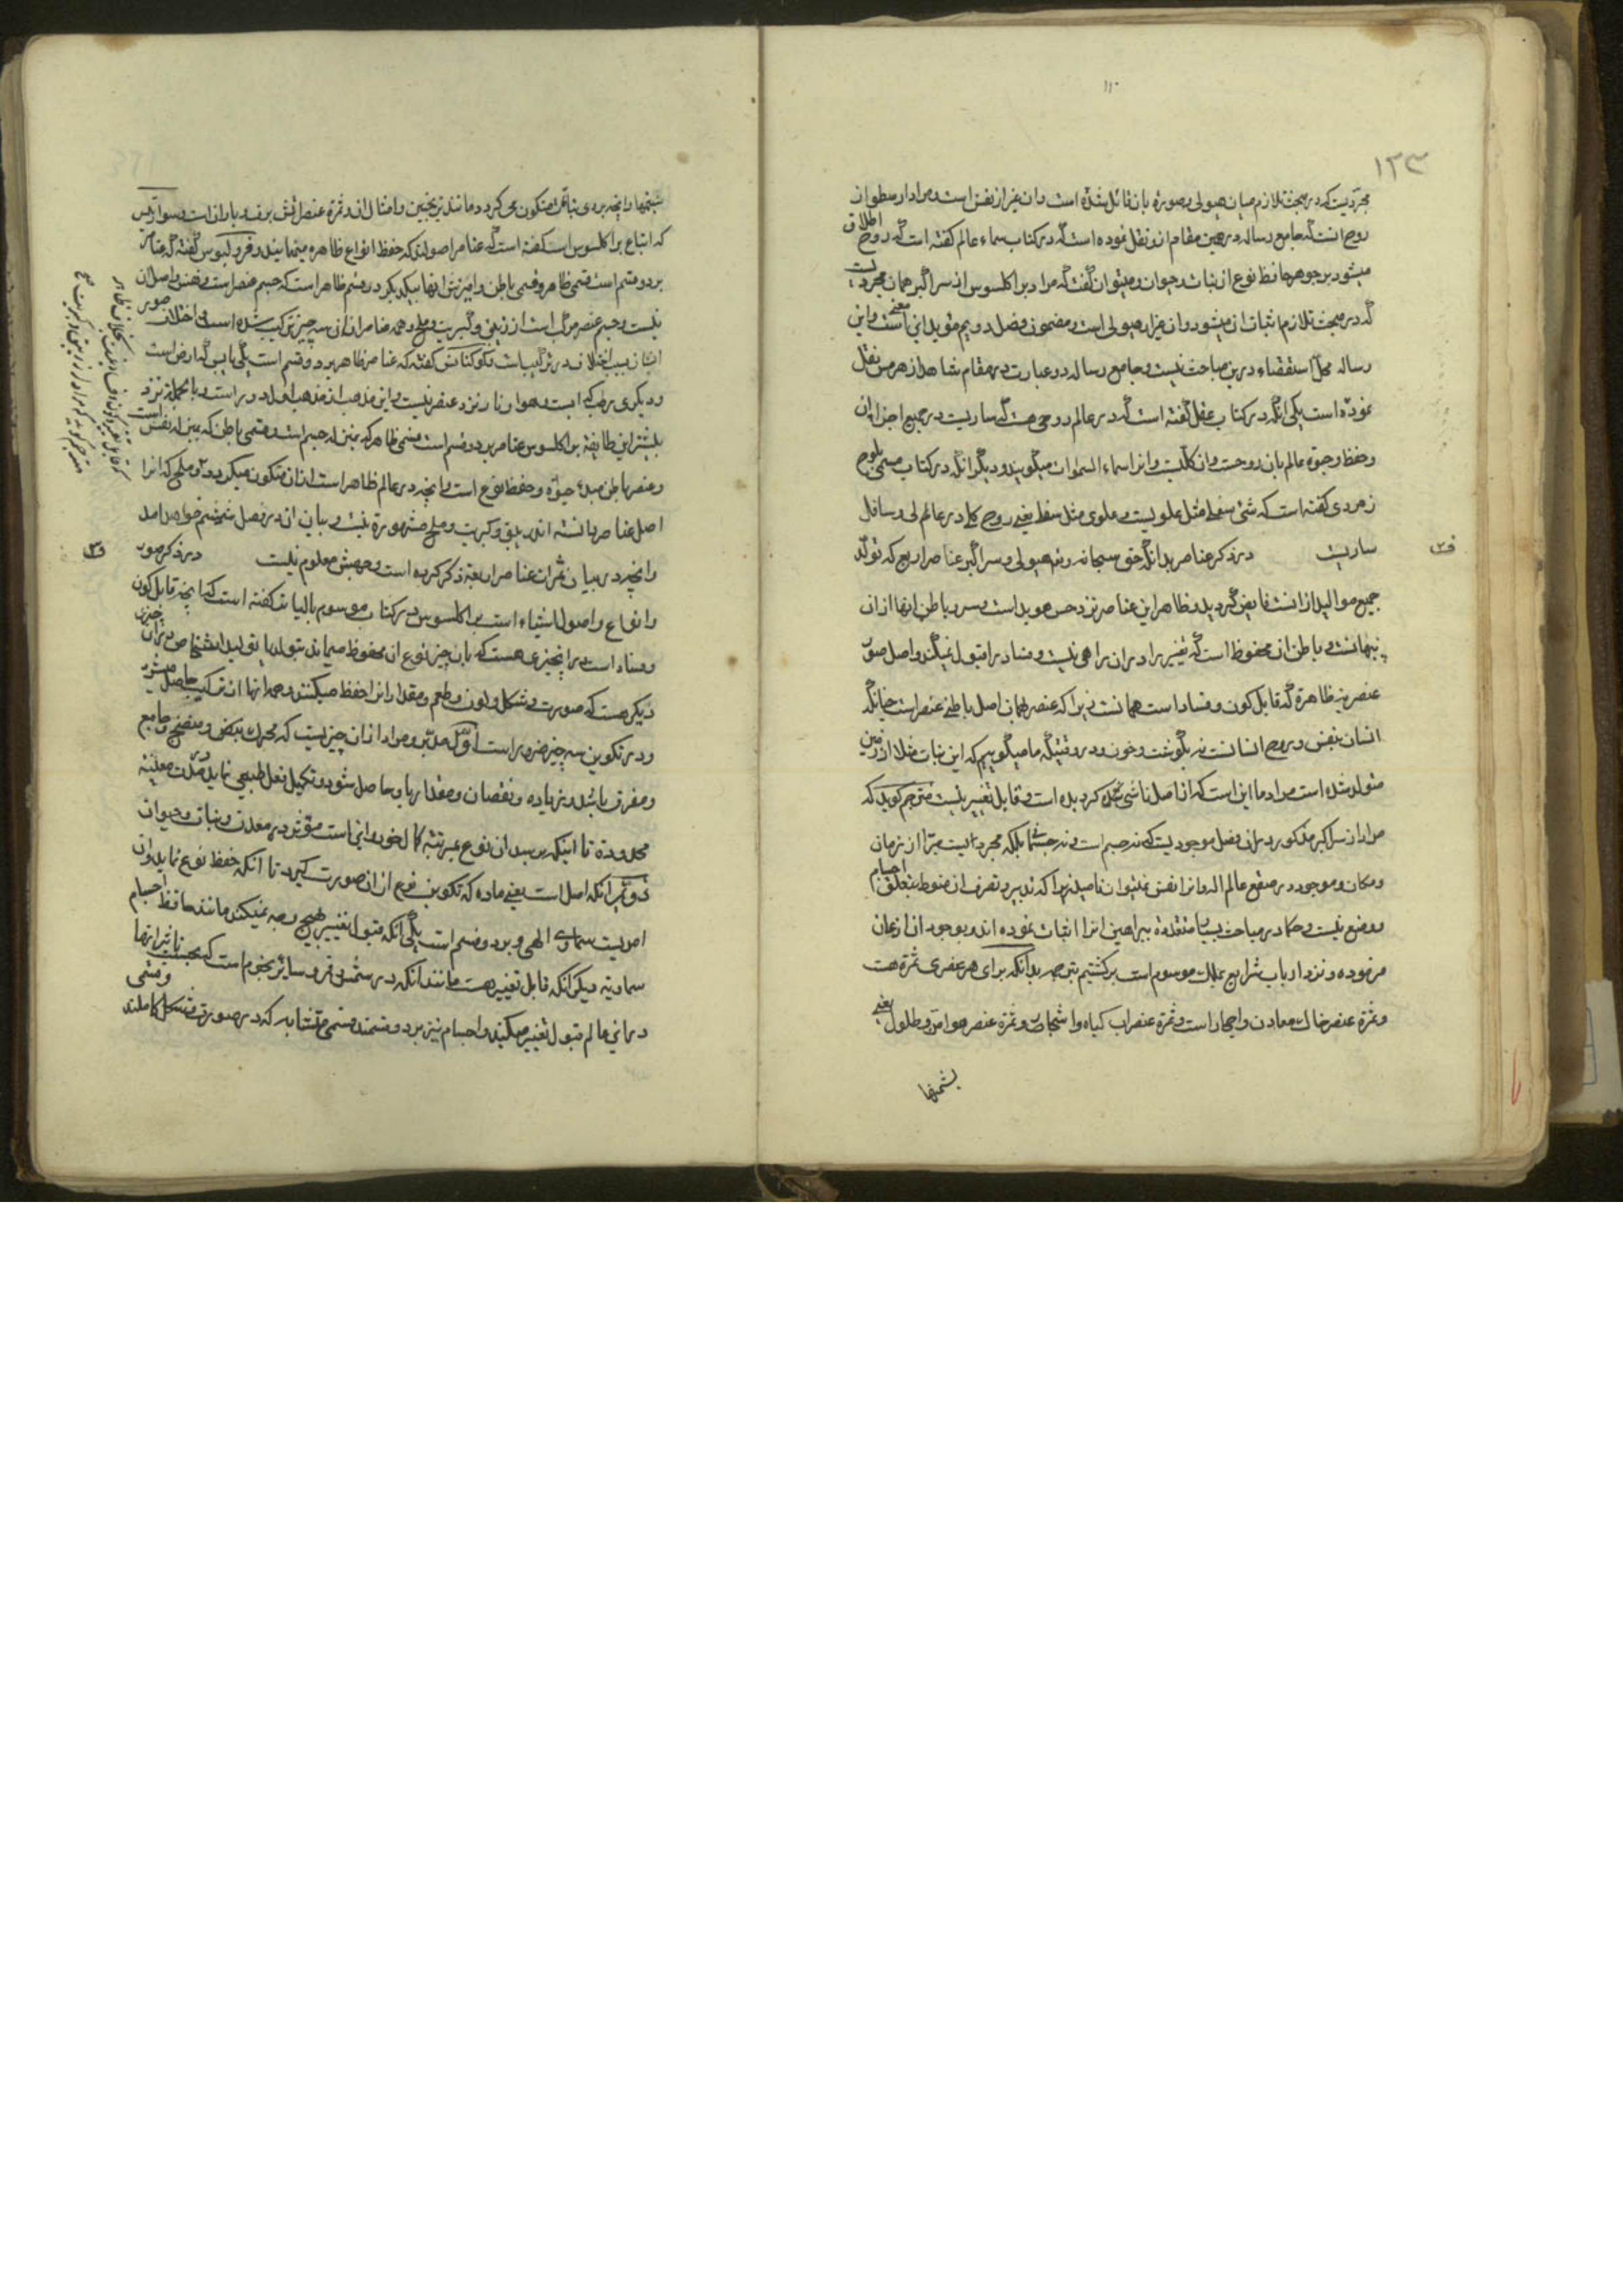 ۱۲۳
مجردیست که در مبحث تلازم میان هیولی و صورة بان قائل شده است و ان غیر از نفس است و مراد ارسطو از
روح انست که جامع رساله در همین مقام ازو نقل نموده است که در کتاب سماء عالم گفته است که روح اطلاق
میشود بر جوهر حافظ نوع از نبات و حیوان و میتوان گفت که مراد براکلسوس از سر اکبر همان مجردیست
که در مبحث تلازم اثبات ان میشود و ان غیر از هیولی است و مضمون فصل دویم مؤید این معنی است و این
رساله محل استقصاء درین مباحث نیست و جامع رساله دو عبارت در مقام شاهد از هرمس نقل
نموده است یکی انکه در کتاب عقل گفته است که در عالم روحی هست که ساریست در جمیع اجزاء ان
و حفظ و حیوة عالم بان روحست و ان کلیست و انرا سماء السموات میگویند و دیگر انکه در کتاب مسمی بلوح
زمردی گفته است که شئ سفلی مثل علویست و علوی مثل سفلی یعنی روح کلی در عالم لی و سافل
ساریست در ذکر عناصر بدانکه حق سبحانه و هیولی و سر اکبر عناصر اربع که تولد
جمیع موالید ازانست فایض گردید و ظاهر این عناصر نزد حس هویداست و سر و باطن انها ازان
پنهانست و باطن ان محفوظ است که تغییر را دران راهی نیست و فساد را قبول نمیکند و اصل صور
عنصریه ظاهره که قابل کون و فساد است همانست زیرا که عنصر همان اصل باطنی عنصر است چنانکه
انسان بنفس و روح انسانست نه بگوشت و خون و در وقتیکه ما میگوییم که این نبات مثلا از زمین
متولد شده است مراد ما این است که از اصل ناشی شده که دیده است و قابل تغییر نیست مترجم گوید که
مراد از سر اکبر مذکور دران فصل موجودیست که نه جسم است و نه جسمانی بلکه مجرد است مبرا از زمان
و مکان و موجود در صقع عالم اله و انرا نفس نمیتوان نامید زیرا که تدبیر و تصرف ان منوط بتعلق اجسام
و وضع نیست و حکما در مباحث ببراهین انرا اثبات نموده اند و بوجود ان اذعان
فرموده و نزد ارباب شرایع بملک موسوم است برگشتیم بترجمه بدانکه برای هر عنصری ثمرة هست
و ثمرة عنصر خاک معادن و احجار است و ثمرة عنصر اب گیاه و اشجار و ثمرة عنصر هوا من و طلول یعنی
شبنمها
شبنمها و انچه بر وی نباتی متکون می گردد مانند ترنجبین و امثال ان و ثمرة عنصر اتش برف و باران است و سوارتوس
که اتباع براکلسوس است گفته است که عناصر اصولند که حفظ انواع ظاهره مینمایند و فرولیوس گفته که عناصر
بر دو قسم است قسمی ظاهر و قسمی باطن و امیزش انها بیکدیگر در قسم ظاهر است که جسم عنصر است و عنصر و اصل ان
نیست و جسم عنصر مرکب است از زیبق و کبریت و ملح و همه عناصر ازین سه چیز ترکیب شده است و اختلاف صور
ایشان بسبب اختلاف در ترکیبات گفته که عناصر ظاهر بر دو قسم است یکی یابس که ارض است
و دیگری رطب که ابست و هوا و نار نزد عنصر نیست و این مذهب از مذهب اول دور است و بالجمله نزد
بیشتر این طایفه براکلسوس عناصر بر دو قسم است قسمی ظاهر که بمنزله جسم است و قسمی باطن که بمنزله نفس است
و عنصر باطن مبدء حیوة و حفظ نوع است و انچه در عالم ظاهر است ازان متکون میگردد و ملحی که انرا
اصل عناصر دانسته اند زیبق و کبریت و ملح مشهوره نیست و بیان ان در فصل ششم خواهد امد
و انچه در بیان ثمرات عناصر اربعه ذکر کرده است وجهش معلوم نیست در ذکر صور
و انواع و اصول اشیاء است براکلسوس در کتاب موسوم بالیات گفته است که انچه قابل کون
و فساد است در انچیزی هست که بان چیز نوع ان محفوظ میماند بتولد یا تولید اشخاص و دران چیزی
دیگر هست که صورت و شکل و لون و طعم و مقدار انرا حفظ میکند و همه انها از ترکیب حاصل میشود
و در تکوین سه چیز ضرور است اول مدبر و مراد ازان چیزیست که محرک و منضج و جامع
و مفرق باشد و زیاده و نقصان و مقدار باو حاصل شود و تکمیل فعل طبیعی نماید در مدت معینه
محدوده تا اینکه برسد ان نوع بمرتبه کمال خود و اینست مؤثر در معدن و نبات و حیوان
دویم انکه اصل است یعنی ماده که تکوین فرع ازان صورت گیرد تا انکه حفظ نوع نماید و ان
امریست سماوی الهی و بر دو قسم است یکی انکه قبول تغییر بهیچ وجه نمیکند مانند حافظ اجسام
سماویه دیگر انکه قابل تغییر هست مانند انکه در شمس و قمر و سایر نجوم است که بحسب تاثیر انها
درین عالم قبول تغییر میکند و اجسام نیز بر دو قسمند قسمی متشابه که در صورت و شکل کاملند و قسمی